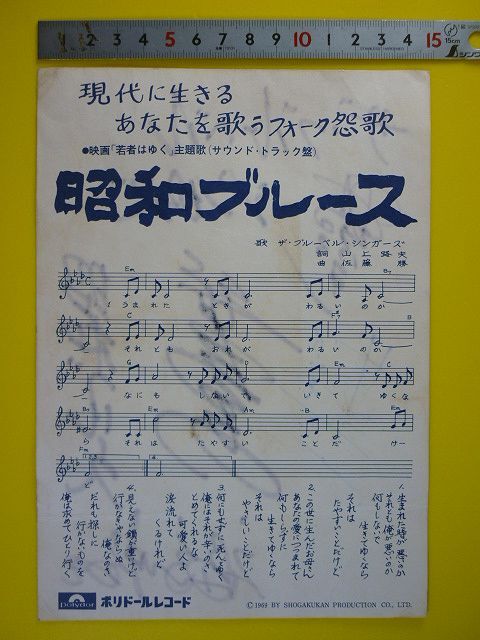 1 2 3 4 5 6 7 8 9 10 1 2 3 4 15
15cm
現代に生きる
あなたを歌うフォーク怨歌
●映画「若者はゆく」主題歌(サウンド・トラック盤)
昭和ブルース
歌 ザ・ブルーベル・シンガーズ
詞 山上路夫
曲 佐藤勝
Em B7
うまれた ときが わるい のか
C F7 B
それとも おれが わるいのか
G D Em C
なにも しないで いきて ゆくな
B7 Em Am B Em
ら それは たやすい ことだ けー
ど
1. 生まれた時が悪いのか
それとも俺が悪いのか
何もしないで
生きてゆくなら
それは
たやすいことだけど
2. この世に生んだお母さん
あなたの愛につつまれて
何もしらずに
生きてゆくなら
それは
やさしいことだけど
3. 何にもせずに死んでゆく
俺にはそれが辛いのさ
とめてくれるな
可愛い人よ
涙流れて
くるけれど
4. 見えない鎖が重いけど
行かなきゃならぬ
俺なのさ
だれも探しに
行かないものを
俺は求めてひとり行く
Polydor ポリドールレコード
© 1969 BY SHOGAKUKAN PRODUCTION CO., LTD.